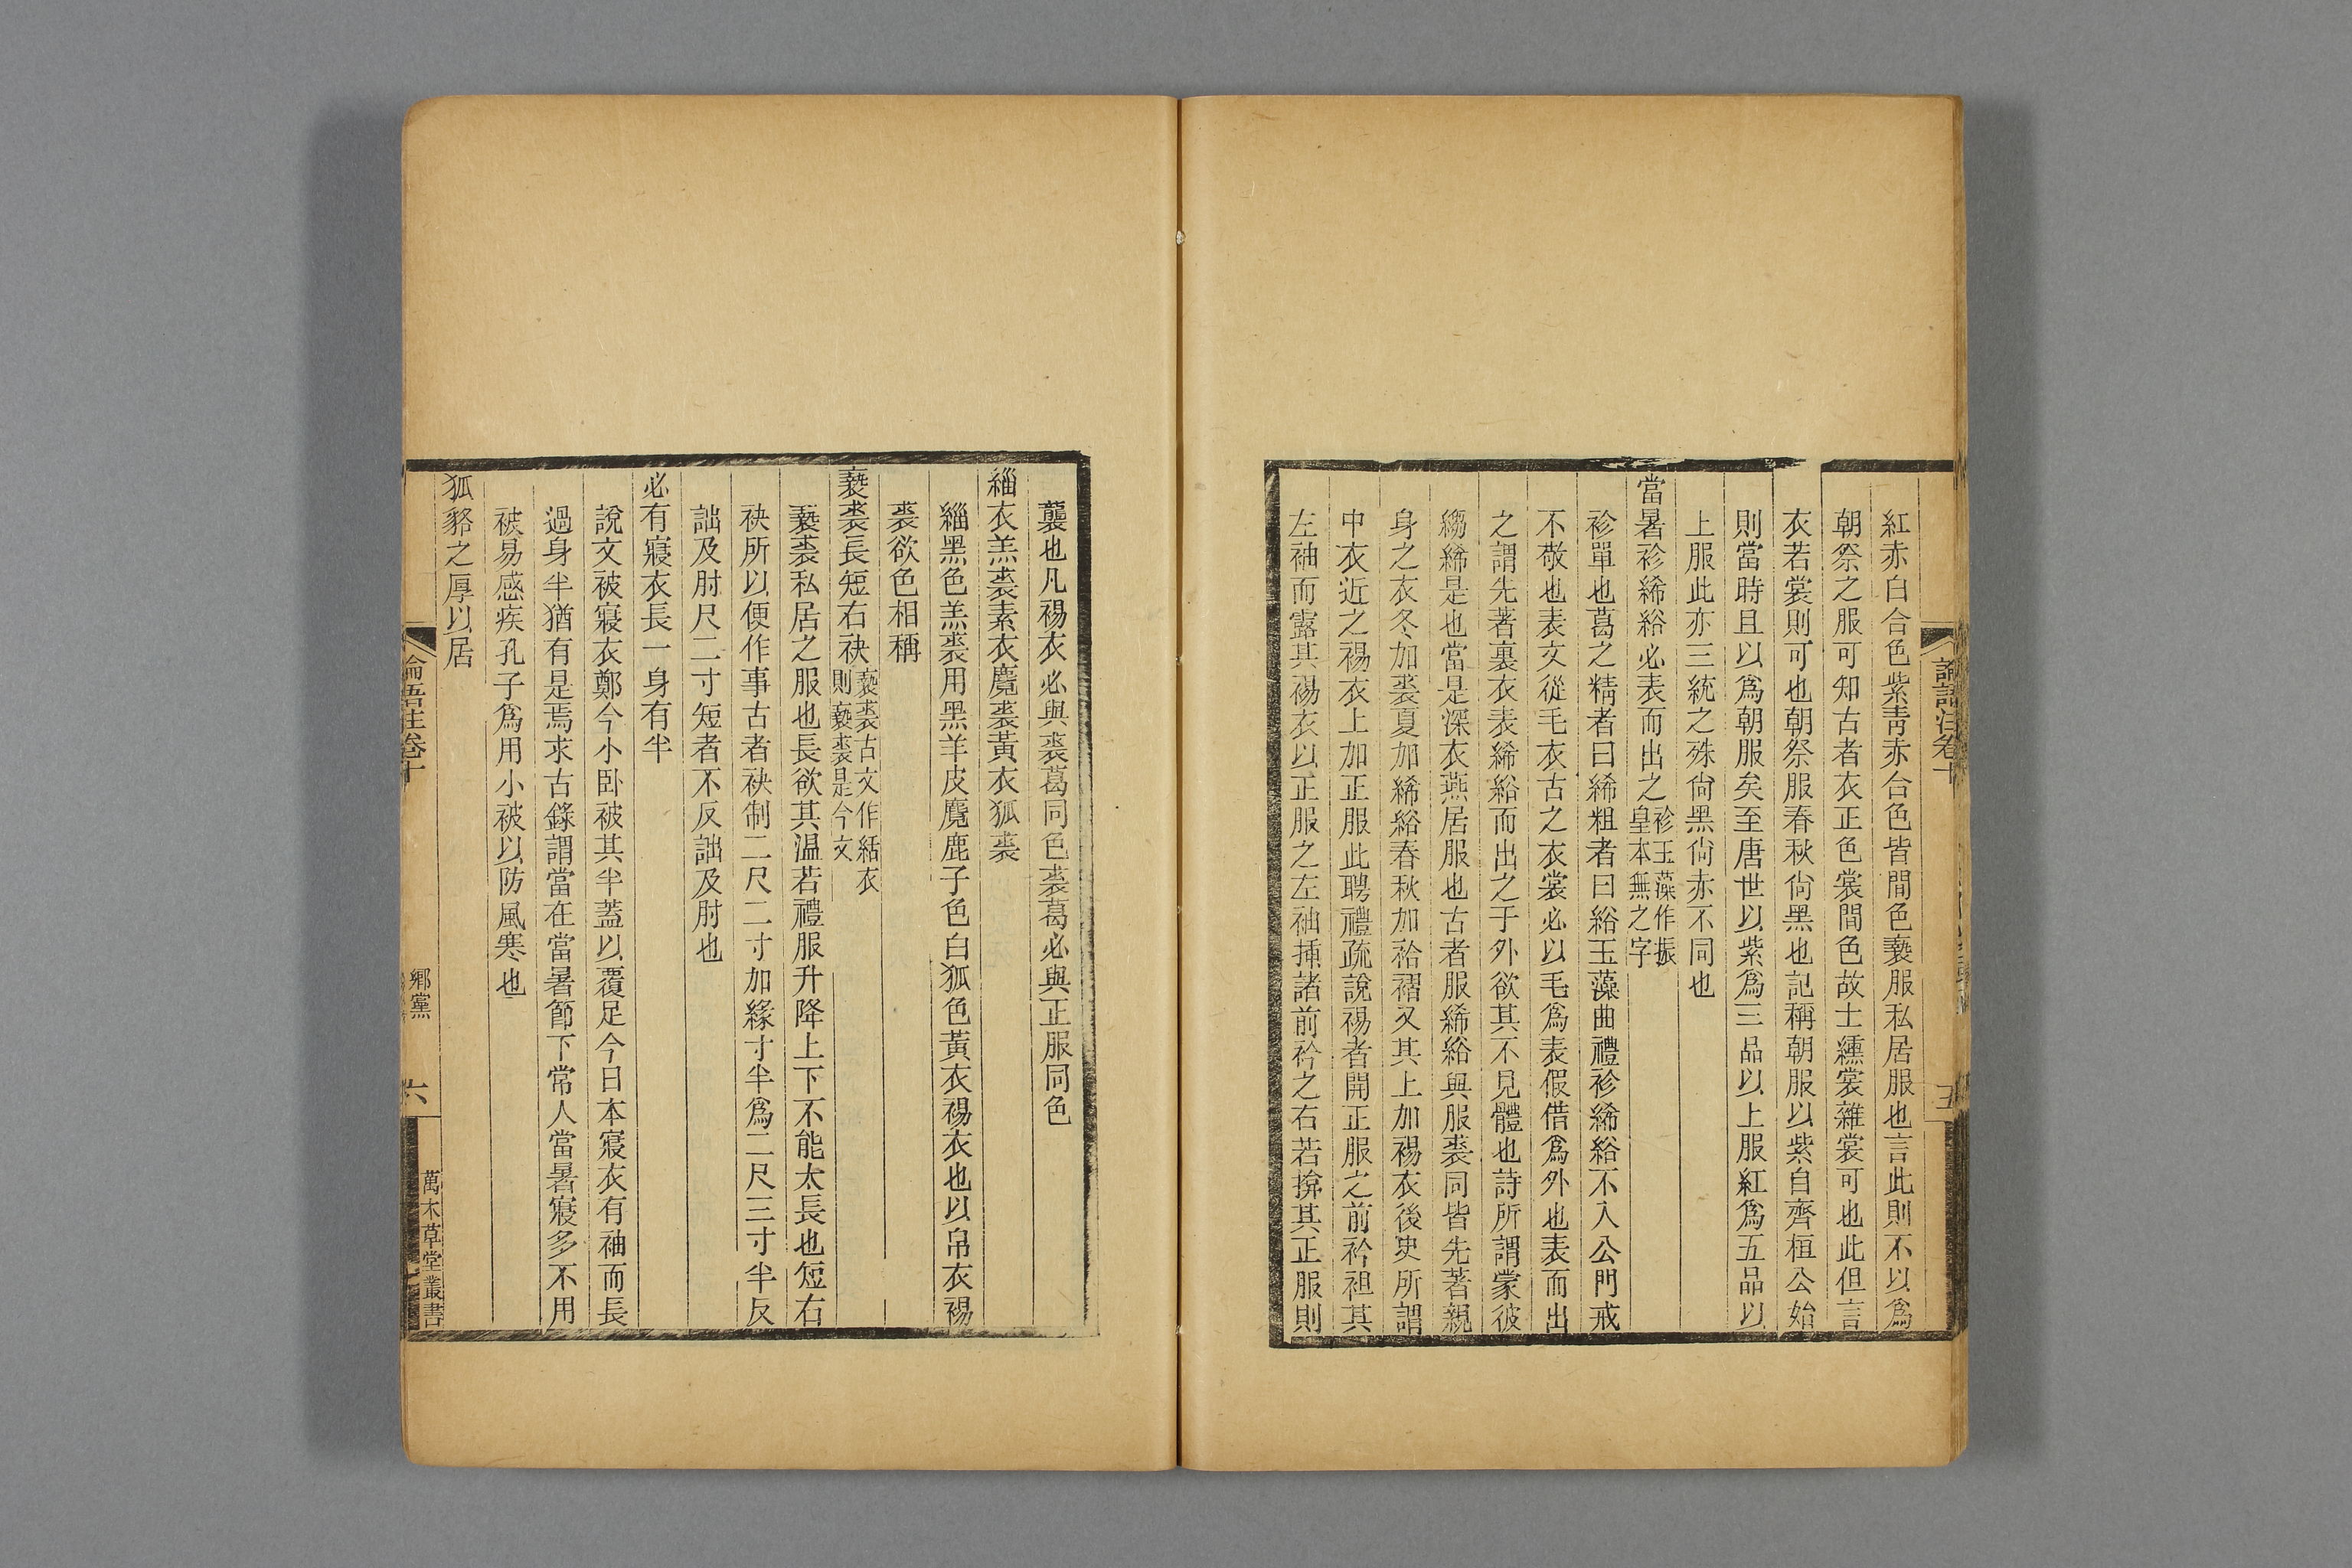 論語注卷十
五
紅赤白合色紫青赤合色皆間色褻服私居服也言此則不以爲
朝祭之服可知古者衣正色裳間色故士纁裳雜裳可也此但言
衣若裳則可也朝祭服春秋尙黑也記稱朝服以紫自齊桓公始
則當時且以爲朝服矣至唐世以紫爲三品以上服紅爲五品以
上服此亦三統之殊尙黑尙赤不同也
當暑袗絺綌必表而出之袗玉藻作振皇本無之字
袗單也葛之精者曰絺粗者曰綌玉藻曲禮袗絺綌不入公門戒
不敬也表文從毛衣古之衣裳必以毛爲表假借爲外也表而出
之謂先著裏衣表絺綌而出之于外欲其不見體也詩所謂蒙彼
縐絺是也當是深衣燕居服也古者服絺綌與服裘同皆先著親
身之衣冬加裘夏加絺綌春秋加袷褶又其上加裼衣後史所謂
中衣近之裼衣上加正服此聘禮疏說裼者開正服之前衿袒其
左袖而露其裼衣以正服之左袖揷諸前衿之右若揜其正服則
襲也凡裼衣必與裘葛同色裘葛必與正服同色
緇衣羔裘素衣麑裘黃衣狐裘
緇黑色羔裘用黑羊皮麑鹿子色白狐色黃衣裼衣也以帛衣裼
裘欲色相稱
褻裘長短右袂褻裘古文作結衣則褻裘是今文
褻裘私居之服也長欲其温若禮服升降上下不能太長也短右
袂所以便作事古者袂制二尺二寸加緣寸半爲二尺三寸半反
詘及肘尺二寸短者不反詘及肘也
必有寢衣長一身有半
說文被寢衣鄭今小卧被其半蓋以覆足今日本寢衣有袖而長
過身半猶有是焉求古錄謂當在當暑節下常人當暑寢多不用
被易感疾孔子爲用小被以防風寒也
狐貉之厚以居
論語注卷十
鄉黨
六
萬木草堂叢書